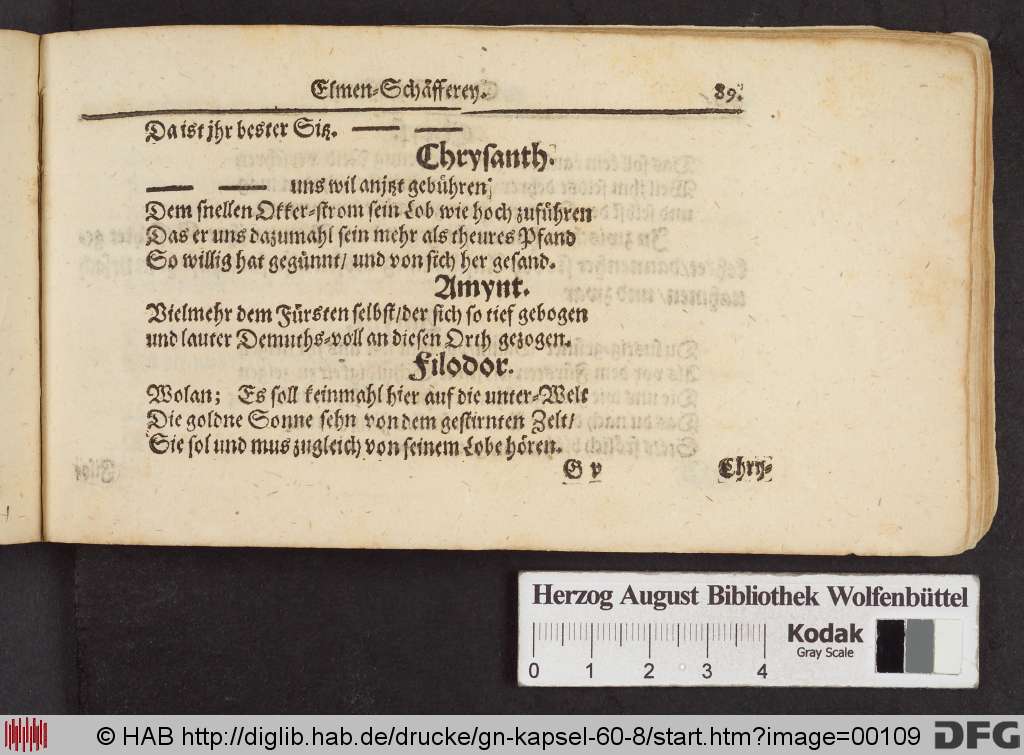 Elmen-Schäfferey. 89.
Da ist jhr bester Sitz. — —
Chrysanth.
— — uns wil anjtzt gebühren;
Dem snellen Okker-strom sein Lob wie hoch zuführen
Das er uns dazumahl sein mehr als theures Pfand
So willig hat gegünnt/ und von sich her gesand.
Amynt.
Vielmehr dem Fürsten selbst/der sich so tief gebogen
und lauter Demuths-voll an diesen Orth gezogen.
Filodor.
Wolan; Es soll keinmahl hier auf die unter-Welt
Die goldne Sonne sehn von dem gestirnten Zelt/
Sie sol und mus zugleich von seinem Lobe hören.
G v Chry-
Herzog August Bibliothek Wolfenbüttel
0 1 2 3 4
Kodak
Gray Scale
© HAB http://diglib.hab.de/drucke/gn-kapsel-60-8/start.htm?image=00109
DFG